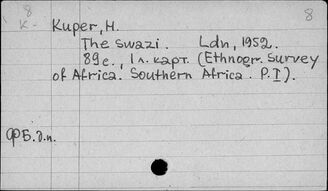 8
8
К- Kuper, H.
The Swazi. Ldn, 1952.
89 с., 1 л. карт. (Ethnogr. Survey
of Africa. Southern Africa. P. I).
ФБ.д.п.